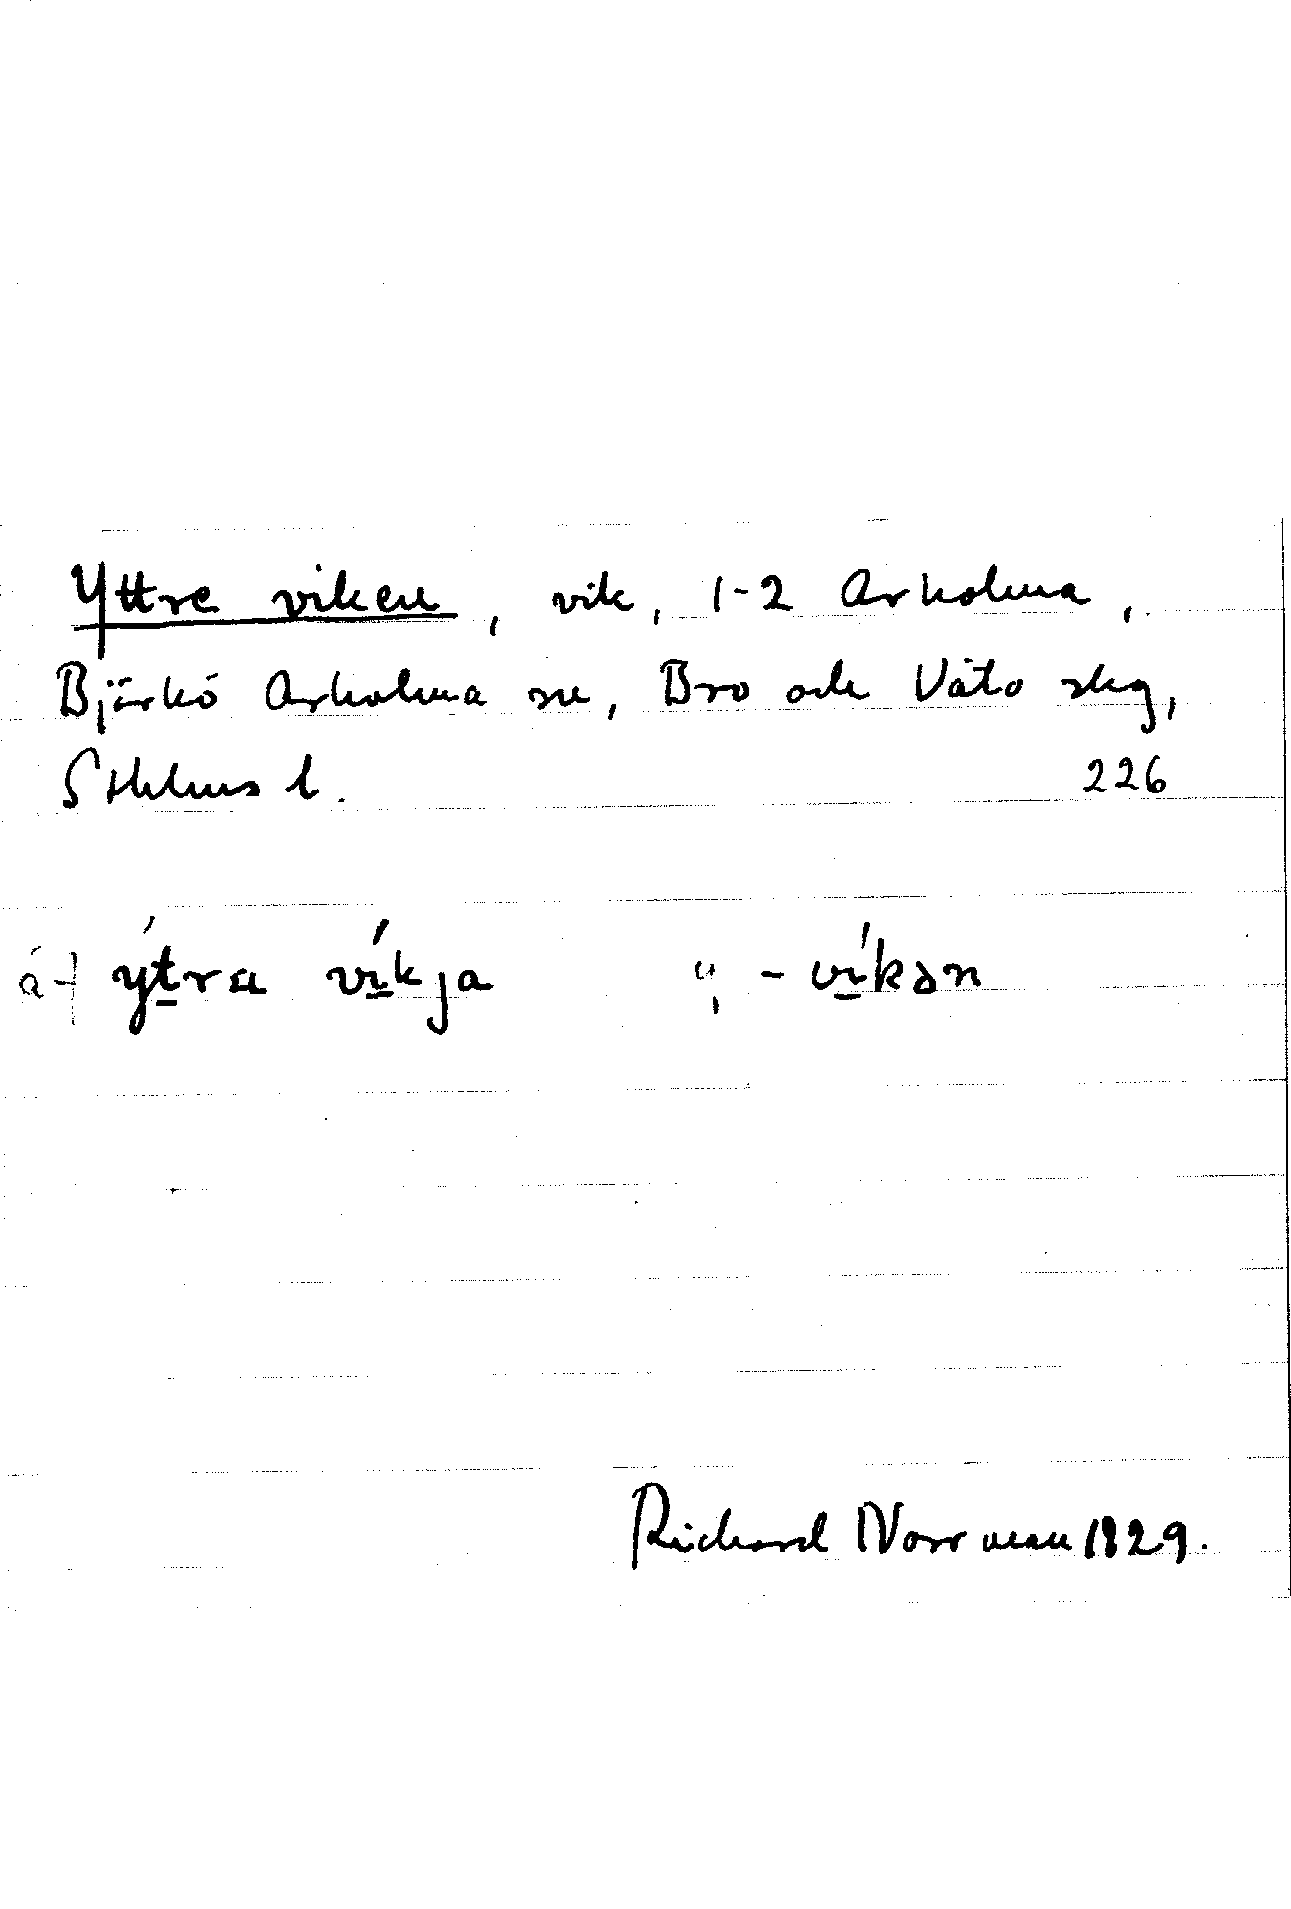 Yttre viken, vik, 1-2 Arholma,
Björkö Arholma sn, Bro och Vätö skg,
Sthlms l. 226
á-} ýtra víkja " - víkən
Richard Norrman 1929.